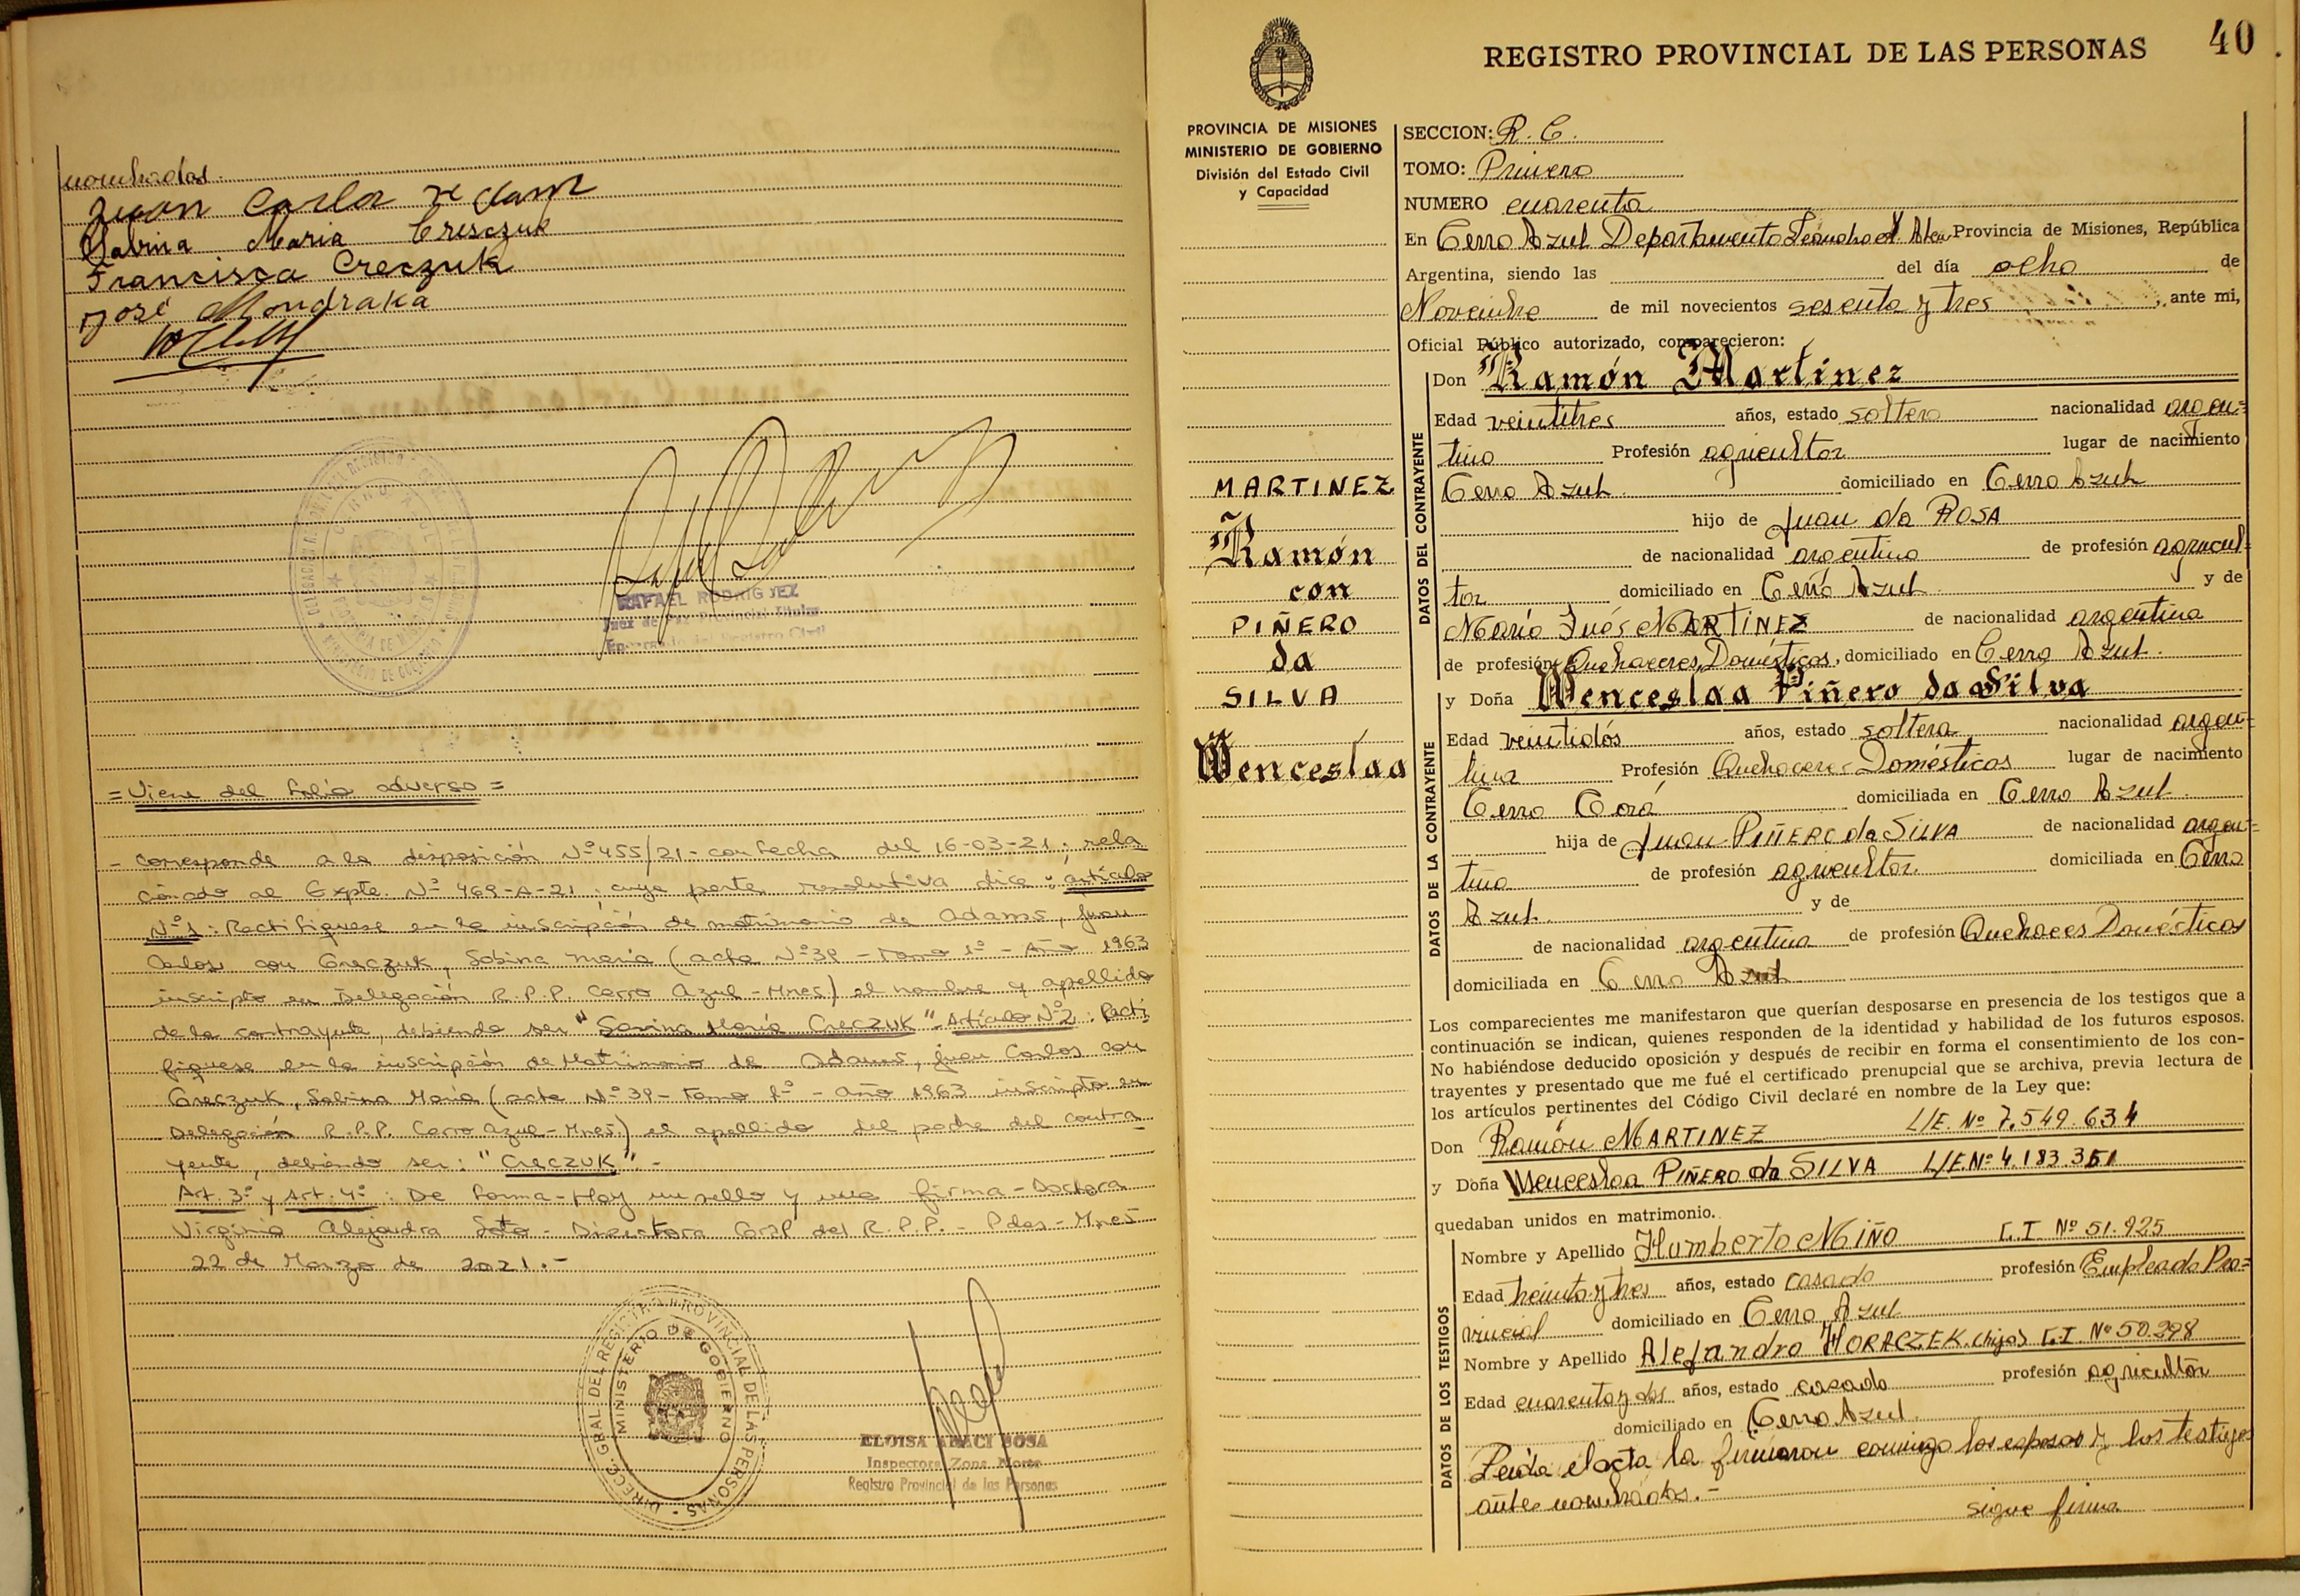 nombrados.
Juan Carlos Adams
Sabina Maria Cresczuk
Francisca Creczuk
José Mondraka
RAFAEL RODRIGUEZ
Juez de Paz Provincial Titular
Encargado del Registro Civil
CERRO AZUL
PROVINCIA DE MISIONES
MINISTERIO DE GOBIERNO
= Viene del folio adverso =
- Corresponde a la disposición Nº 455/21 - con fecha del 16-03-21; rela
cionado al Expte. Nº 469-A-21; cuya parte resolutiva dice: artículo
Nº1: Rectifiquese en la inscripción de matrimonio de Adams, Juan
Carlos con Creczuk, Sabina María (acta Nº 39 - Tomo 1º - Año 1963
inscripto en Delegación R.P.P. Cerro Azul - Mnes) el nombre y apellido
de la contrayente, debiendo ser "Savina María Creczuk". Artículo Nº2: Recti
fiquese en la inscripción de Matrimonio de Adams, Juan Carlos con
Creczuk, Sabina María (acta Nº 39 - Tomo 1º - Año 1963 inscripto en
Delegación R.P.P. Cerro Azul - Mnes) el apellido del padre del contra
yente, debiendo ser: "CRECZUK". -
Art. 3º y Art. 4º: De forma - Hay un sello y una firma - Doctora
Virginia Alejandra Soto - Directora Gral del R.P.P. - Pdas - Mnes
22 de Marzo de 2021. -
DIRECC. GRAL DEL REGISTRO PROVINCIAL DE LAS PERSONAS
MINISTERIO DE GOBIERNO
ELOISA ARACI SOSA
Inspectora Zona Norte
Registro Provincial de las Personas
40
REGISTRO PROVINCIAL DE LAS PERSONAS
PROVINCIA DE MISIONES
MINISTERIO DE GOBIERNO
División del Estado Civil
y Capacidad
MARTINEZ
Ramón
con
PIÑERO
da
SILVA
Wenceslaa
SECCION: R. C.
TOMO: Primero
NUMERO cuarenta
En Cerro Azul Departamento Leandro N. Alem Provincia de Misiones, República
Argentina, siendo las del día ocho de
Noviembre de mil novecientos sesenta y tres, ante mi,
Oficial Público autorizado, comparecieron:
DATOS DEL CONTRAYENTE
Don Ramón Martinez
Edad veintitres años, estado soltero nacionalidad argen=
tino Profesión agricultor lugar de nacimiento
Cerro Azul domiciliado en Cerro Azul
hijo de Juan da ROSA
de nacionalidad argentino de profesión agricul=
tor domiciliado en Cerro Azul y de
María Inés MARTINEZ de nacionalidad argentina
de profesión Quehaceres Domésticos, domiciliado en Cerro Azul.
DATOS DE LA CONTRAYENTE
y Doña Wenceslaa Piñero da Silva
Edad veintidós años, estado soltera nacionalidad argen=
tina Profesión Quehaceres Domésticos lugar de nacimiento
Cerro Corá domiciliada en Cerro Azul.
hija de Juan PIÑERO da SILVA de nacionalidad argen=
tino de profesión agricultor domiciliada en Cerro
Azul. y de
de nacionalidad argentina de profesión Quehaces Domésticos
domiciliada en Cerro Azul
Los comparecientes me manifestaron que querían desposarse en presencia de los testigos que a
continuación se indican, quienes responden de la identidad y habilidad de los futuros esposos.
No habiéndose deducido oposición y después de recibir en forma el consentimiento de los con-
trayentes y presentado que me fué el certificado prenupcial que se archiva, previa lectura de
los artículos pertinentes del Código Civil declaré en nombre de la Ley que:
Don Ramón MARTINEZ L/E. Nº 7.549.634
y Doña Wenceslaa PIÑERO da SILVA L/E. Nº 4.183.351
quedaban unidos en matrimonio.
DATOS DE LOS TESTIGOS
Nombre y Apellido Humberto MIÑO C.I. Nº 51.925
Edad treinta y tres años, estado casado profesión Empleado Pro=
vincial domiciliado en Cerro Azul
Nombre y Apellido Alejandro HORACZEK (hijo) C.I. Nº 50.298
Edad cuarenta y dos años, estado casado profesión agricultor
domiciliado en Cerro Azul.
Leída el acta la firmaron conmigo los esposos y los testigos
antes nombrados. -
sigue firma